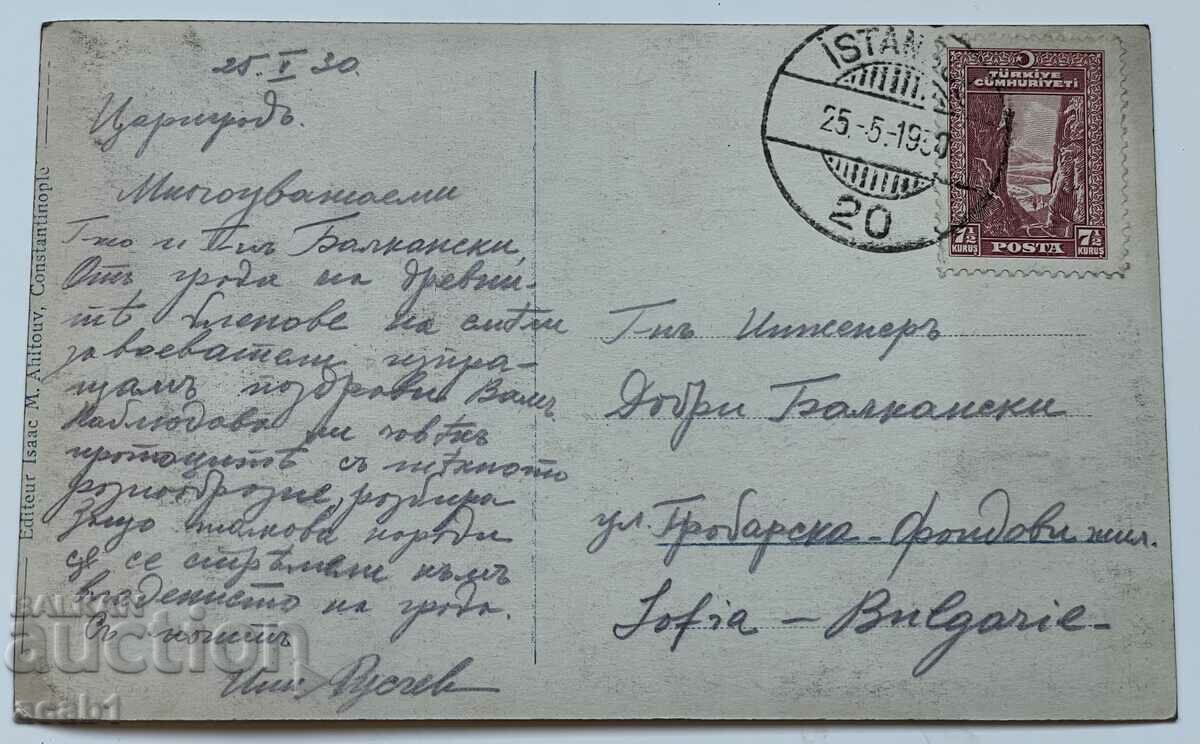 25.V 30.
Цариградъ.
Многоуважаеми
Г-жо и Г-нъ Балкански,
Отъ града на древни-
тѣ блѣнове на смѣли
завоеватели изпра-
щамъ поздрави Вамъ
Наблюдава ли човѣкъ
протоцитѣ съ тѣхното
разнообразие, разбира
защо толкова народи
сѫ се стрѣмели къмъ
владението на града.
Съ почит
Инж. Русчев
Editeur Isaac M. Ahitouv, Constantinople
İSTANBUL
25.-5.-1930
20
TÜRKİYE
CÜMHURİYETİ
7½ KURUŞ POSTA 7½ KURUŞ
Г-нъ Инженеръ
Добри Балкански
ул. Гробарска - фондови жил.
Sofia - Bulgarie -
BALKAN
auction
acab1